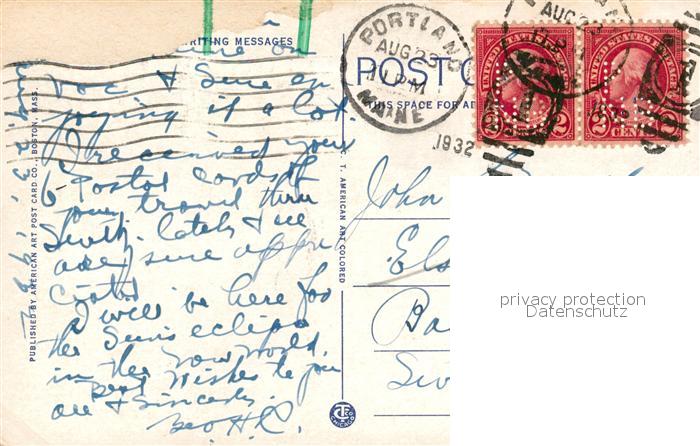 RITING MESSAGES
on
voc & Sure en
joying it a lot.
I received your
6 Postal cards of
your travel thru
Switz. lately & we
are sure appre
ciated
I will be here for
the Sun's eclipse
in the
best wishes to you
all & Sincerely
Geo H.R.
Aug. 23. 1932
PUBLISHED BY AMERICAN ART POST CARD CO., BOSTON, MASS.
C. T. AMERICAN ART COLORED
CT CHICAGO
POST C
THIS SPACE FOR AD
PORTLAND
AUG 23
11 PM
MAINE
1932
AUG 23
UNITED STATES POSTAGE
2 CENTS 2
UNITED STATES POSTAGE
2 CENTS 2
John
Els
Ba
Sw
privacy protection
Datenschutz